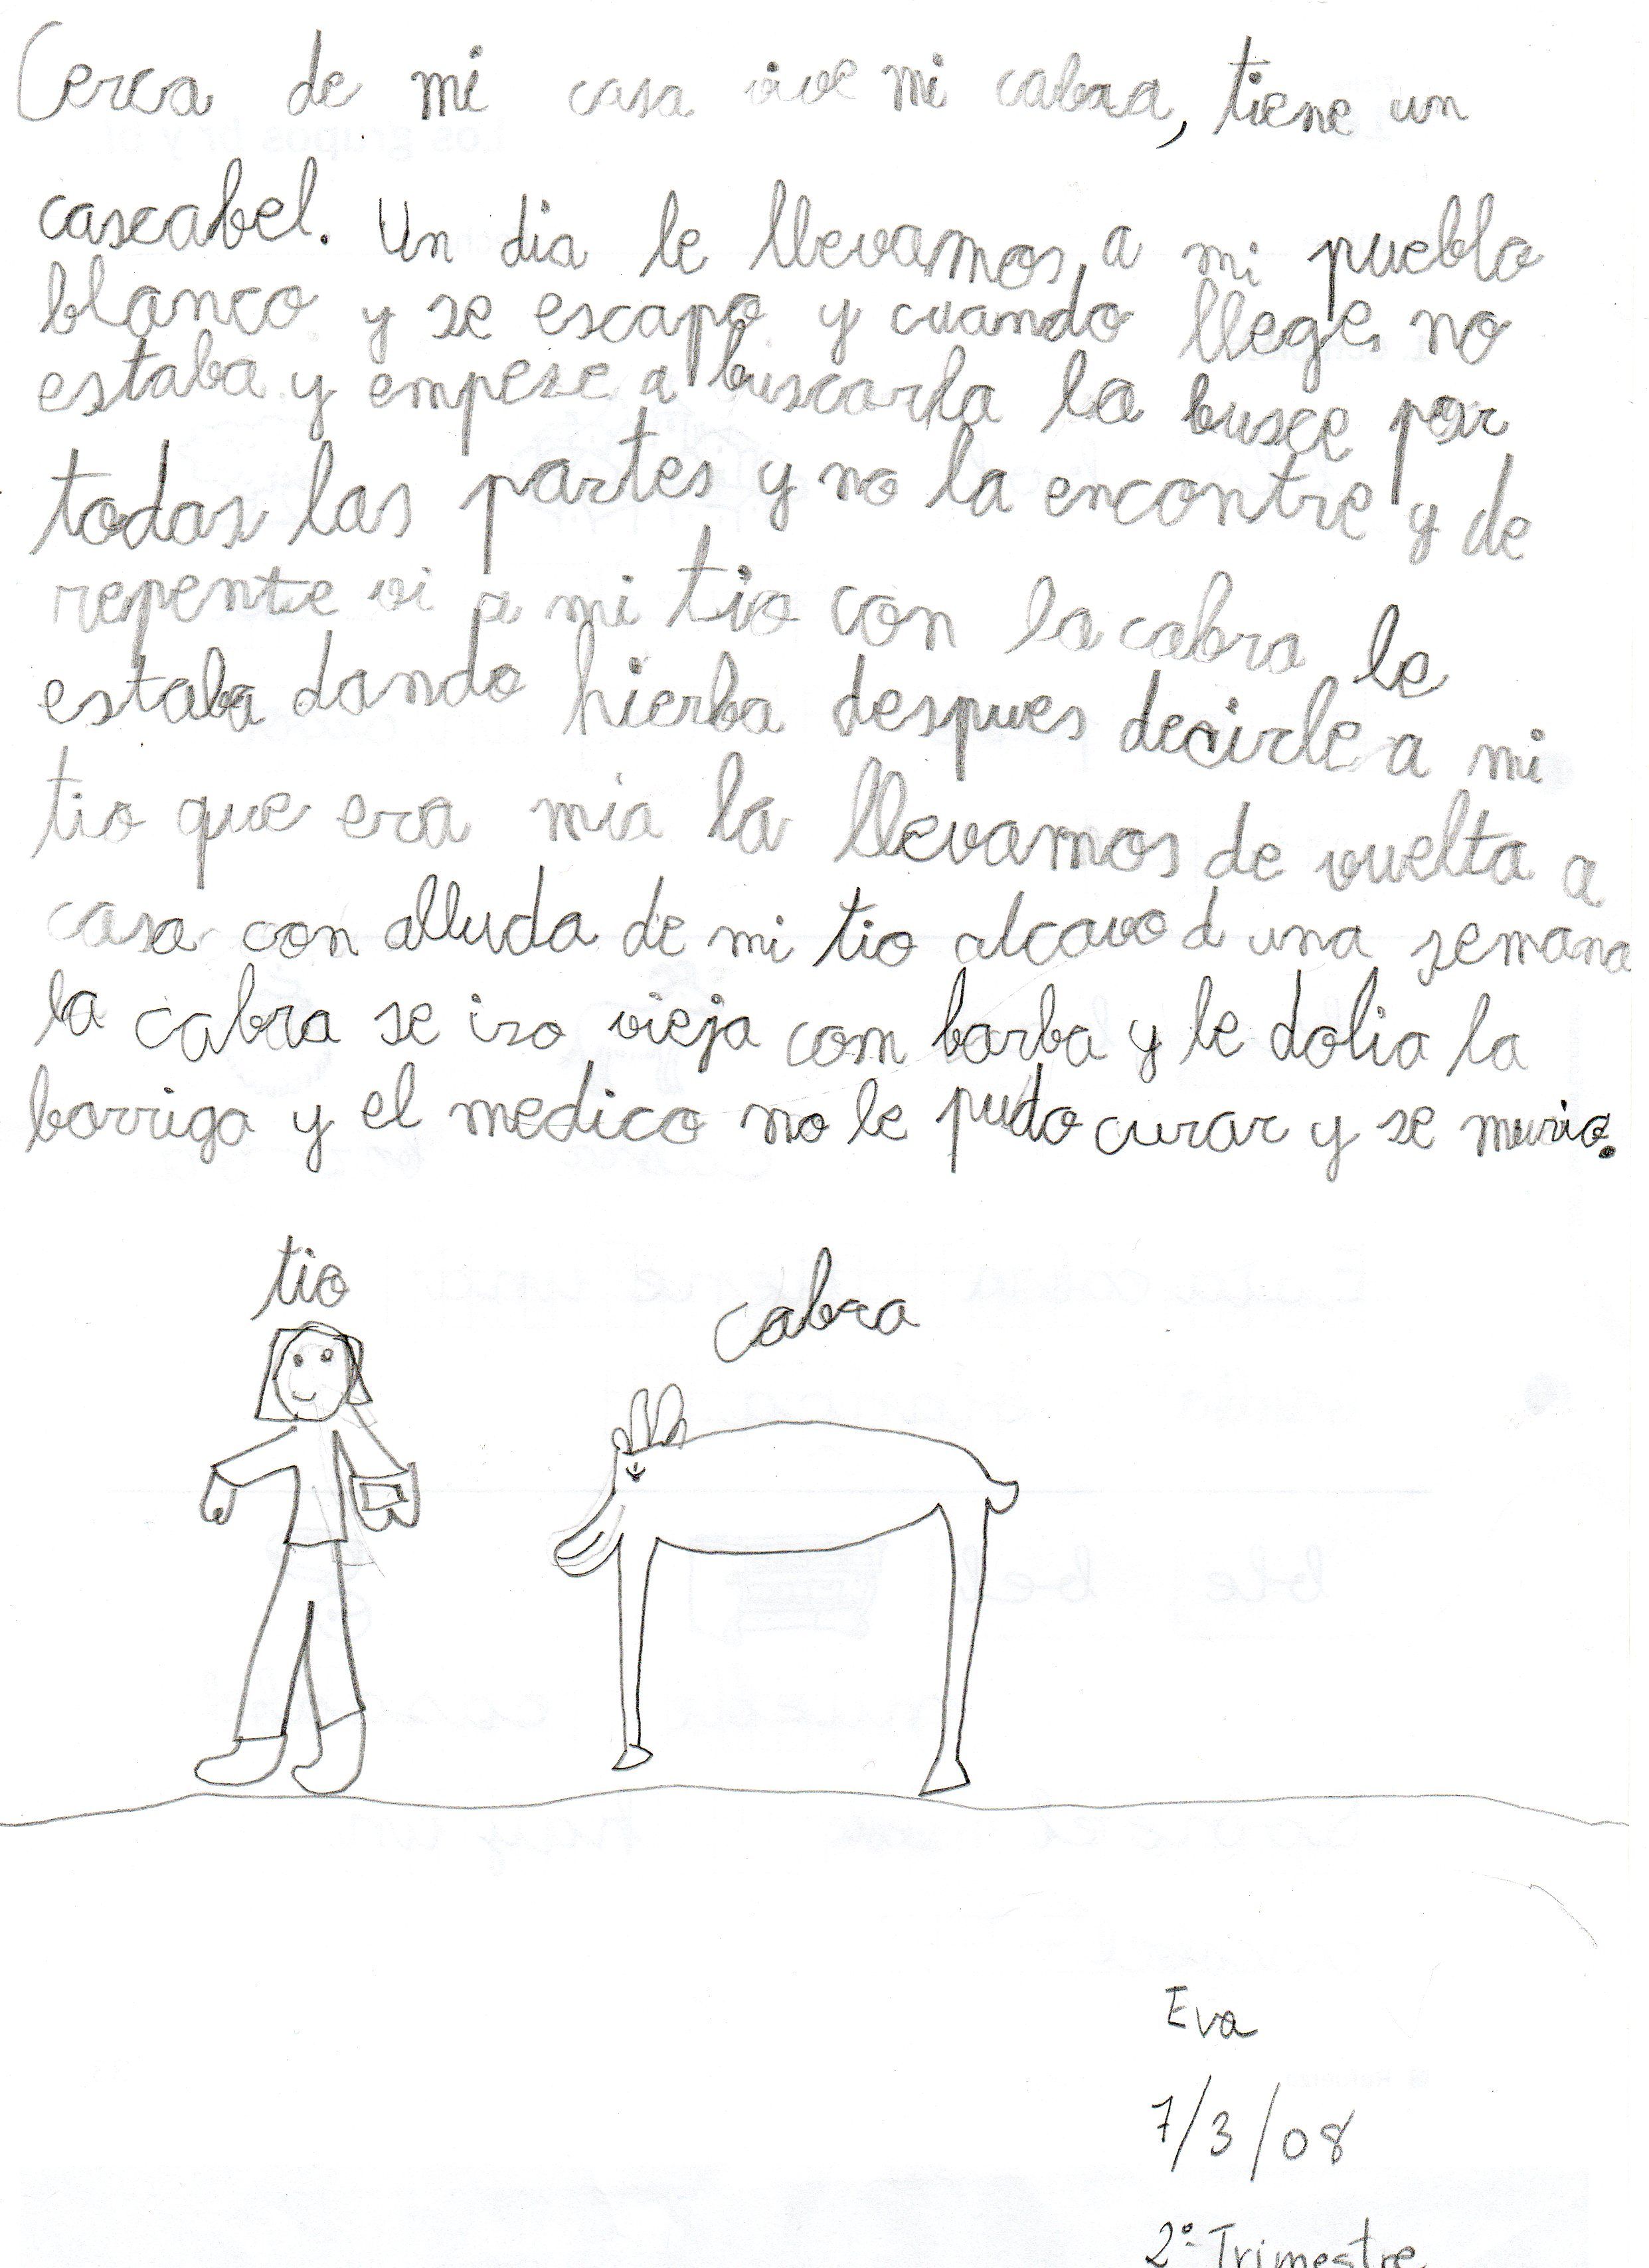 Cerca de mi casa vive mi cabra, tiene un
cascabel. Un dia le llevamos a mi pueblo
blanco y se escapo y cuando llege no
estaba y empese a buscarla la busce por
todas las partes y no la encontre y de
repente vi a mi tio con la cabra le
estaba dando hierba despues decirle a mi
tio que era mia la llevamos de vuelta a
casa con alluda de mi tio alcavo d una semana
la cabra se izo vieja com barba y le dolia la
barriga y el medico no le pudo curar y se murio.
tio
cabra
Eva
7/3/08
2º Trimestre